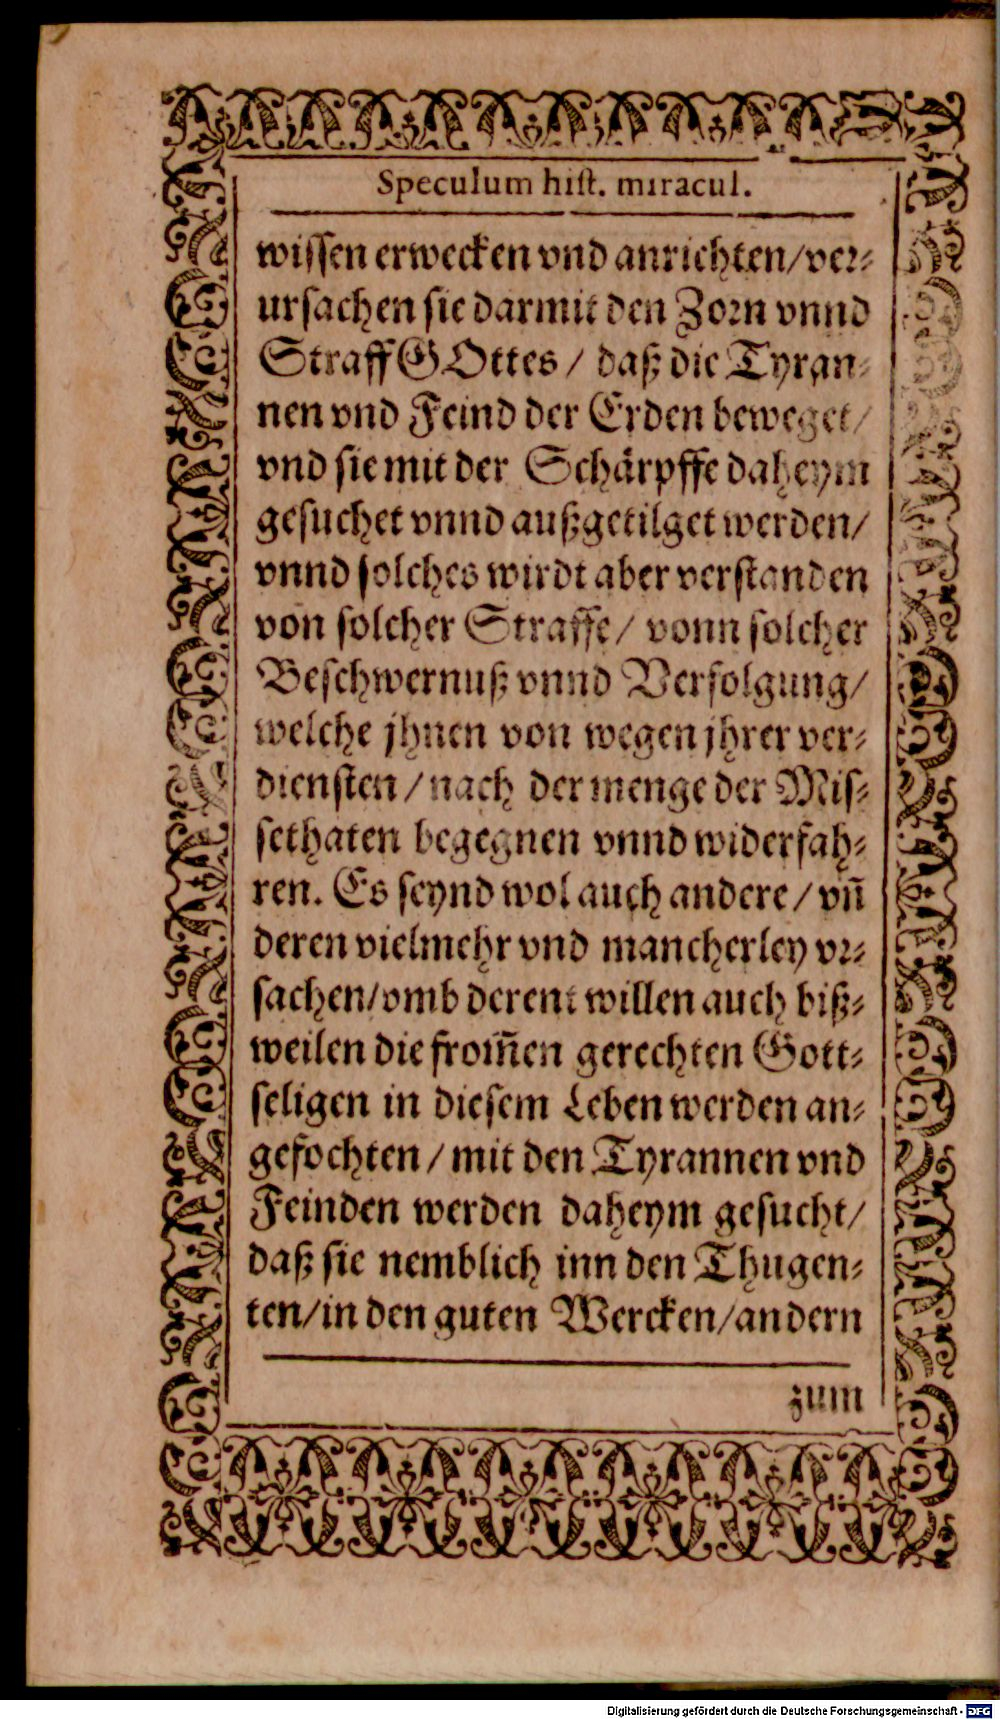 Speculum hist. miracul.
wissen erwecken vnd anrichten/ver-
ursachen sie darmit den Zorn vnnd
Straff GOttes / daß die Tyran-
nen vnd Feind der Erden beweget/
vnd sie mit der Schärpffe daheym
gesuchet vnnd außgetilget werden/
vnnd solches wirdt aber verstanden
von solcher Straffe/ vonn solcher
Beschwernuß vnnd Verfolgung/
welche jhnen von wegen jhrer ver-
diensten / nach der menge der Mis-
sethaten begegnen vnnd widerfah-
ren. Es seynd wol auch andere / vñ
deren vielmehr vnd mancherley vr-
sachen/vmb derent willen auch biß-
weilen die from̃en gerechten Gott-
seligen in diesem Leben werden an-
gefochten / mit den Tyrannen vnd
Feinden werden daheym gesucht/
daß sie nemblich inn den Thugen-
ten/in den guten Wercken/andern
zum
Digitalisierung gefördert durch die Deutsche Forschungsgemeinschaft - DFG